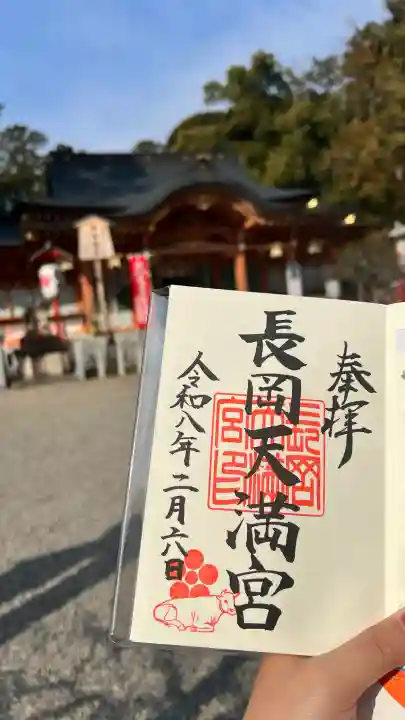 奉拝
長岡天満宮
令和八年二月六日